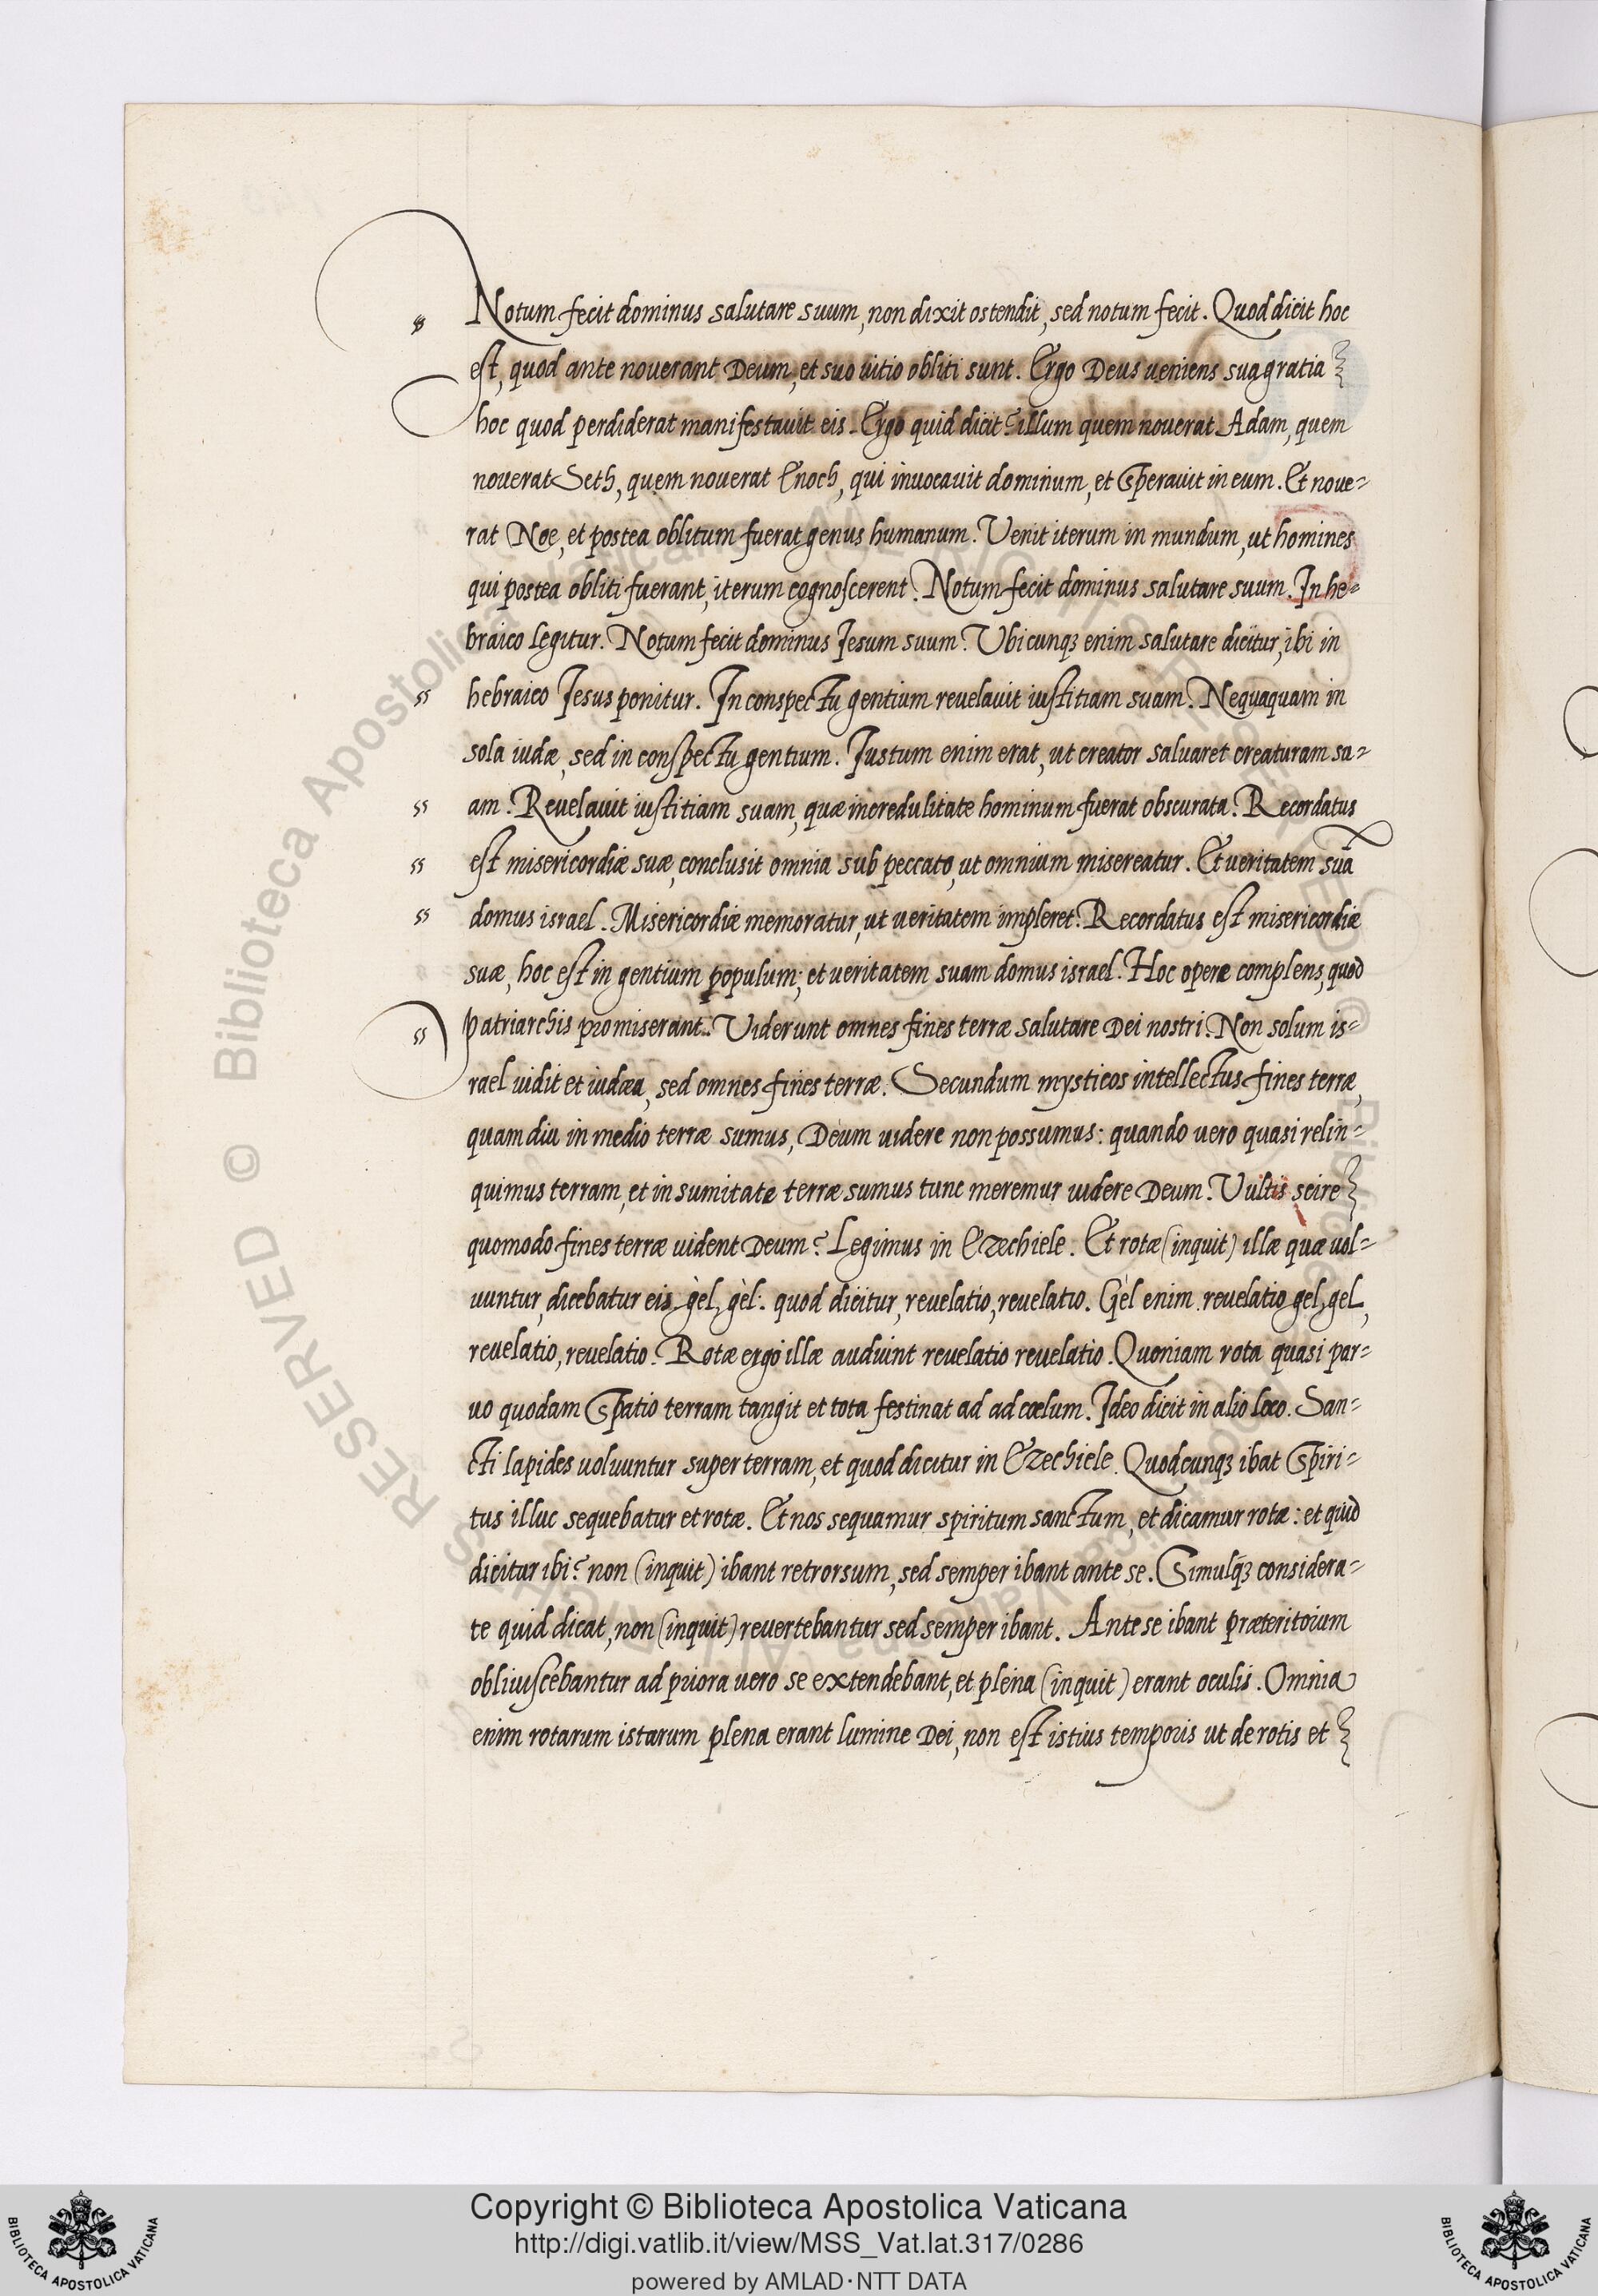 Notum fecit dominus salutare suum, non dixit ostendit, sed notum fecit. Quod dicit hoc
est, quod ante noverant Deum, et suo vitio obliti sunt. Ergo Deus veniens sua gratia
hoc quod perdiderat manifestavit eis. Ergo quid dicit? illum quem noverat Adam, quem
noverat Seth, quem noverat Enoch, qui invocavit dominum, et speravit in eum. Et nove=
rat Noe, et postea oblitum fuerat genus humanum. Venit iterum in mundum, ut homines
qui postea obliti fuerant, iterum cognoscerent. Notum fecit dominus salutare suum. In he=
braico legitur. Notum fecit dominus Jesum suum. Ubicunqȝ enim salutare dicitur, ibi in
hebraico Jesus ponitur. In conspectu gentium revelavit iustitiam suam. Nequaquam in
sola iudæ, sed in conspectu gentium. Justum enim erat, ut creator salvaret creaturam su=
am. Revelavit iustitiam suam, quæ incredulitate hominum fuerat obscurata. Recordatus
est misericordiæ suæ, conclusit omnia sub peccato, ut omnium misereatur. Et veritatem suā
domus israel. Misericordiæ memoratur, ut veritatem impleret. Recordatus est misericordiæ
suæ, hoc est in gentium populum; et veritatem suam domus israel. Hoc opere complens, quod
patriarchis promiserant. Viderunt omnes fines terræ salutare Dei nostri. Non solum is=
rael vidit et iudæa, sed omnes fines terræ. Secundum mysticos intellectus fines terræ,
quamdiu in medio terræ sumus, Deum videre non possumus: quando vero quasi relin=
quimus terram, et in sumitate terræ sumus tunc meremur videre Deum. Vultis scire
quomodo fines terræ vident Deum? Legimus in Ezechiele. Et rotæ (inquit) illæ quæ vol=
vuntur, dicebatur eis gèl, gèl: quod dicitur, revelatio, revelatio. Gèl enim revelatio gel, gel,
revelatio, revelatio. Rotæ ergo illæ audiunt revelatio revelatio. Quoniam rota quasi par=
vo quodam spatio terram tangit et tota festinat ad ad cœlum. Ideo dicit in alio loco. San=
cti lapides volvuntur super terram, et quod dicitur in Ezechiele. Quodcunqȝ ibat spiri=
tus illuc sequebatur et rotæ. Et nos sequamur spiritum sanctum, et dicamur rotæ: et quid
dicitur ibi? non (inquit) ibant retrorsum, sed semper ibant ante se. Simulqȝ considera=
te quid dicat, non (inquit) revertebantur sed semper ibant. Ante se ibant præteritorum
obliviscebantur ad priora vero se extendebant, et plena (inquit) erant oculis. Omnia
enim rotarum istarum plena erant lumine Dei, non est istius temporis ut de rotis et
Copyright © Biblioteca Apostolica Vaticana
http://digi.vatlib.it/view/MSS_Vat.lat.317/0286
powered by AMLAD·NTT DATA